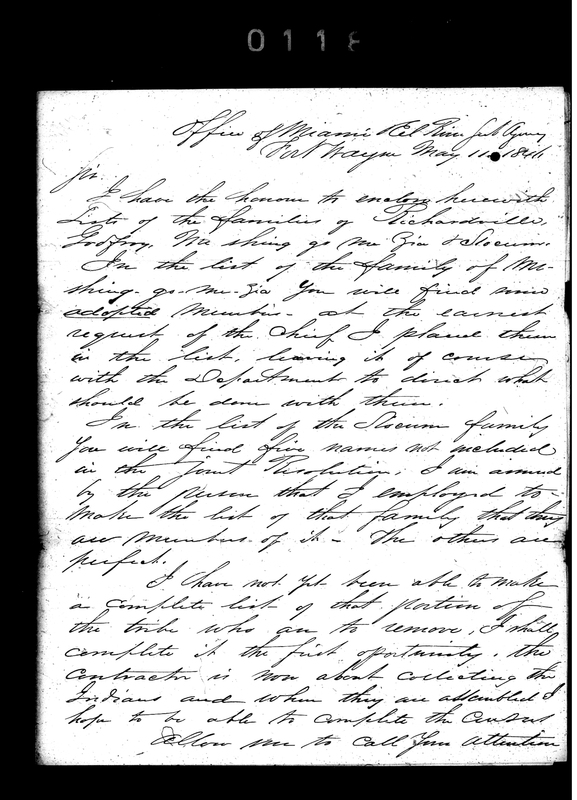 0118
Office of Miami & Eel River Sub Agency
Fort Wayne May 11. 1846
Sir
I have the honour to enclose herewith
Lists of the families of Richardville,
Godfroy, Me shing go me Zia & Slocum.
In the list of the family of Me-
shing-go-me-Zia You will find nine
adopted members - at the earnest
request of the Chief I placed them
in the list, leaving it of course
with the Department to direct what
should be done with them.
In the list of the Slocum family
You will find five names not included
in the Joint Resolution, I am assured
by the person that I employed to-
make the list of that family that they
are members of it - The others are
perfect.
I have not yet been able to make
a complete list of that portion of
the tribe who are to remove, I shall
complete it the first oportunity. The
contractor is now about collecting the
Indians and when they are assembled I
hope to be able to complete the census
Allow me to call Your attention